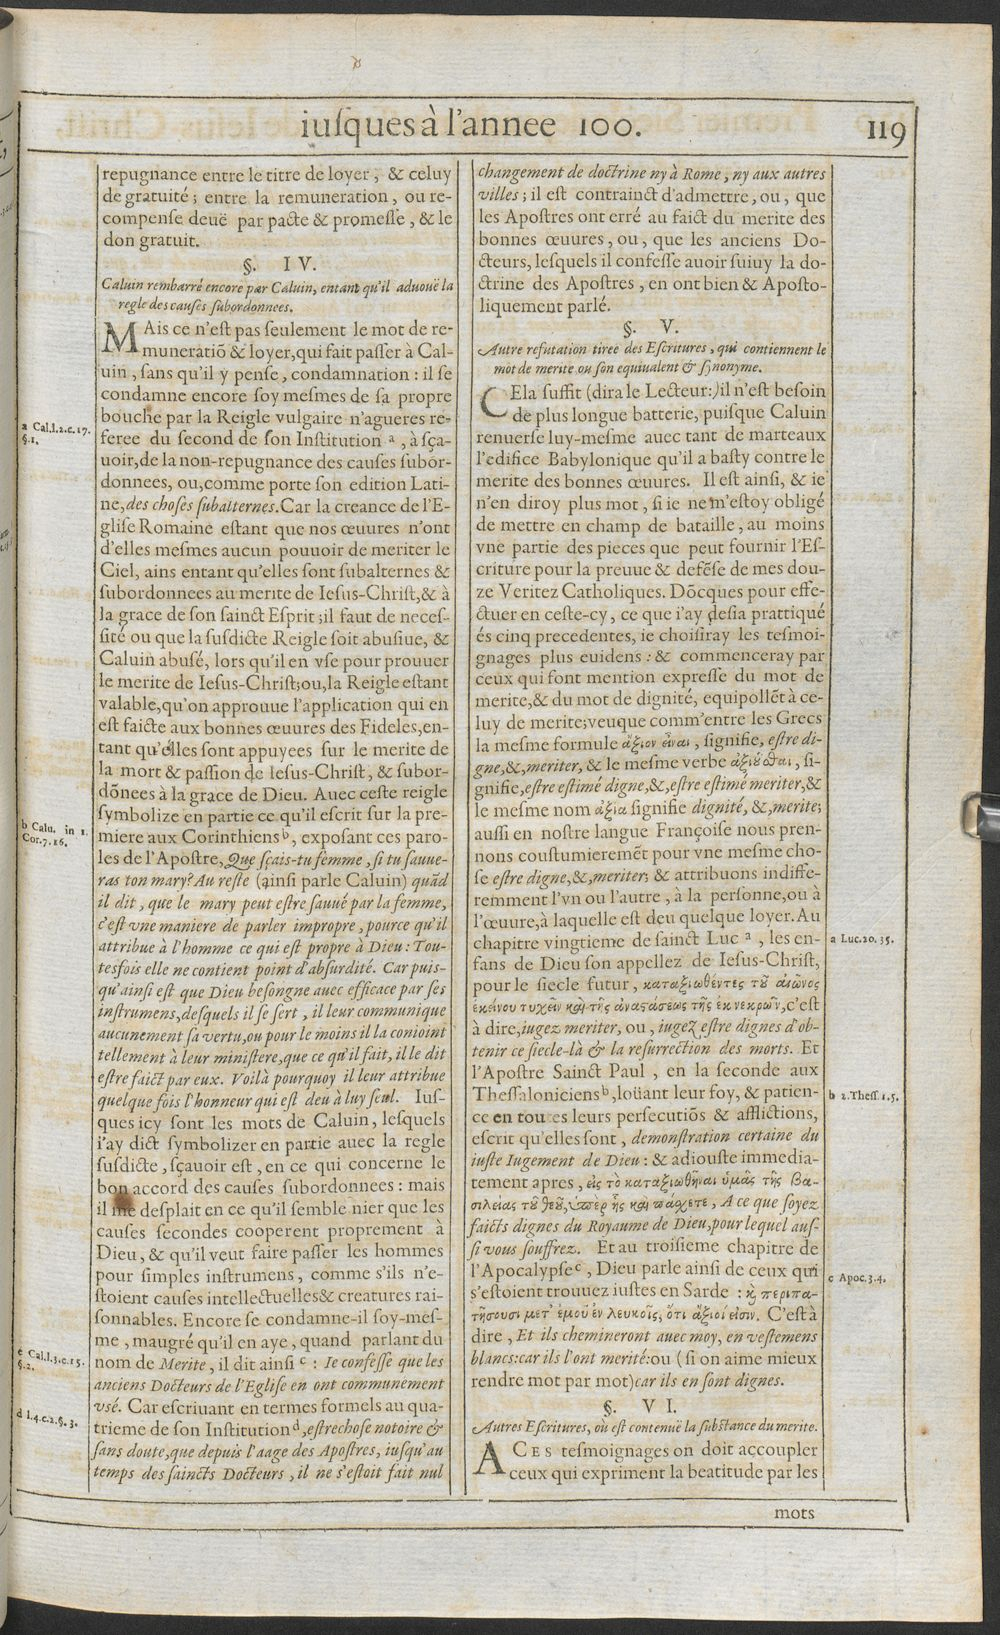 iuſques à l'annee 100.
119
repugnance entre le titre de loyer, & celuy
de gratuité; entre la remuneration, ou re-
compenſe deuë par pacte & promeſſe, & le
don gratuit.
§. IV.
Caluin rembarré encore par Caluin, entant qu'il aduouë la
regle des cauſes ſubordonnees.
MAis ce n'eſt pas ſeulement le mot de re-
muneratiō & loyer, qui fait paſſer à Cal-
uin, ſans qu'il y penſe, condamnation: il ſe
condamne encore ſoy meſmes de ſa propre
bouche par la Reigle vulgaire n'agueres re-
feree du ſecond de ſon Inſtitution a, à ſça-
uoir, de la non-repugnance des cauſes ſubor-
donnees, ou, comme porte ſon edition Lati-
ne, des choſes ſubalternes. Car la creance de l'E-
gliſe Romaine eſtant que nos œuures n'ont
d'elles meſmes aucun pouuoir de meriter le
Ciel, ains entant qu'elles ſont ſubalternes &
ſubordonnees au merite de Ieſus-Chriſt, & à
la grace de ſon ſainct Eſprit; il faut de neceſ-
ſité ou que la ſuſdicte Reigle ſoit abuſiue, &
Caluin abuſé, lors qu'il en vſe pour prouuer
le merite de Ieſus-Chriſt; ou, la Reigle eſtant
valable, qu'on approuue l'application qui en
eſt faicte aux bonnes œuures des Fideles, en-
tant qu'elles ſont appuyees ſur le merite de
la mort & paſſion de Ieſus-Chriſt, & ſubor-
dōnees à la grace de Dieu. Auec ceſte reigle
ſymbolize en partie ce qu'il eſcrit ſur la pre-
miere aux Corinthiens b, expoſant ces paro-
les de l'Apoſtre, Que ſçais-tu femme, ſi tu ſauue-
ras ton mary? Au reſte (ainſi parle Caluin) quād
il dit, que le mary peut eſtre ſauué par la femme,
c'eſt vne maniere de parler impropre, pource qu'il
attribue à l'homme ce qui eſt propre à Dieu: Tou-
tesfois elle ne contient point d'abſurdité. Car puis-
qu'ainſi eſt que Dieu beſongne auec efficace par ſes
inſtrumens, deſquels il ſe ſert, il leur communique
aucunement ſa vertu, ou pour le moins il la conioint
tellement à leur miniſtere, que ce qu'il fait, il le dit
eſtre faict par eux. Voilà pourquoy il leur attribue
quelque fois l'honneur qui eſt deu à luy ſeul. Iuſ-
ques icy ſont les mots de Caluin, leſquels
i'ay dict ſymbolizer en partie auec la regle
ſuſdicte, ſçauoir eſt, en ce qui concerne le
bon accord des cauſes ſubordonnees: mais
il me deſplait en ce qu'il ſemble nier que les
cauſes ſecondes cooperent proprement à
Dieu, & qu'il veut faire paſſer les hommes
pour ſimples inſtrumens, comme s'ils n'e-
ſtoient cauſes intellectuelles & creatures rai-
ſonnables. Encore ſe condamne-il ſoy-meſ-
me, maugré qu'il en aye, quand parlant du
nom de Merite, il dit ainſi c: Ie confeſſe que les
anciens Docteurs de l'Egliſe en ont communement
vsé. Car eſcriuant en termes formels au qua-
trieme de ſon Inſtitution d, eſtre choſe notoire &
ſans doute, que depuis l'aage des Apoſtres, iuſqu'au
temps des ſaincts Docteurs, il ne s'eſtoit fait nul
a Cal.l.2.c.17.
§.1.
b Calu. in 1.
Cor.7.16.
c Cal.l.3.c.15.
§.2.
d l.4.c.2.§.3.
changement de doctrine ny à Rome, ny aux autres
villes; il eſt contrainct d'admettre, ou, que
les Apoſtres ont erré au faict du merite des
bonnes œuures, ou, que les anciens Do-
cteurs, leſquels il confeſſe auoir ſuiuy la do-
ctrine des Apoſtres, en ont bien & Apoſto-
liquement parlé.
§. V.
Autre refutation tiree des Eſcritures, qui contiennent le
mot de merite ou ſon equiualent & ſynonyme.
CEla ſuffit (dira le Lecteur:) il n'eſt beſoin
de plus longue batterie, puiſque Caluin
renuerſe luy-meſme auec tant de marteaux
l'edifice Babylonique qu'il a baſty contre le
merite des bonnes œuures. Il eſt ainſi, & ie
n'en diroy plus mot, ſi ie ne m'eſtoy obligé
de mettre en champ de bataille, au moins
vne partie des pieces que peut fournir l'Eſ-
criture pour la preuue & defēſe de mes dou-
ze Veritez Catholiques. Dōcques pour effe-
ctuer en ceſte-cy, ce que i'ay deſia prattiqué
és cinq precedentes, ie choiſiray les teſmoi-
gnages plus euidens: & commenceray par
ceux qui font mention expreſſe du mot de
merite, & du mot de dignité, equipollēt à ce-
luy de merite; veu que comm'entre les Grecs
la meſme formule ἄξιον εἶναι, ſignifie, eſtre di-
gne, &, meriter, & le meſme verbe ἀξιοῦσθαι, ſi-
gnifie, eſtre eſtimé digne, &, eſtre eſtimé meriter, &
le meſme nom ἀξία ſignifie dignité, &, merite;
auſſi en noſtre langue Françoiſe nous pren-
nons couſtumieremēt pour vne meſme cho-
ſe eſtre digne, &, meriter; & attribuons indiffe-
remment l'vn ou l'autre, à la perſonne, ou à
l'œuure, à laquelle eſt deu quelque loyer. Au
chapitre vingtieme de ſainct Luc a, les en-
fans de Dieu ſon appellez de Ieſus-Chriſt,
pour le ſiecle futur, καταξιωθέντες τοῦ αἰῶνος
ἐκείνου τυχεῖν καὶ τῆς ἀναστάσεως τῆς ἐκ νεκρῶν, c'eſt
à dire, iugez meriter, ou, iugez eſtre dignes d'ob-
tenir ce ſiecle-là & la reſurrection des morts. Et
l'Apoſtre Sainct Paul, en la ſeconde aux
Theſſaloniciens b, loüant leur foy, & patien-
ce en toutes leurs perſecutiōs & afflictions,
eſcrit qu'elles ſont, demonſtration certaine du
iuſte Iugement de Dieu: & adiouſte immedia-
tement apres, εἰς τὸ καταξιωθῆναι ὑμᾶς τῆς βα-
σιλείας τοῦ θεοῦ, ὑπὲρ ἧς καὶ πάσχετε, A ce que ſoyez
faicts dignes du Royaume de Dieu, pour lequel auſ-
ſi vous ſouffrez. Et au troiſieme chapitre de
l'Apocalypſe c, Dieu parle ainſi de ceux qui
s'eſtoient trouuez iuſtes en Sarde: κὶ περιπα-
τήσουσι μετ' ἐμοῦ ἐν λευκοῖς, ὅτι ἄξιοί εἰσιν. C'eſt à
dire, Et ils chemineront auec moy, en veſtemens
blancs: car ils l'ont merité: ou (ſi on aime mieux
rendre mot par mot) car ils en ſont dignes.
§. VI.
Autres Eſcritures, où eſt contenuë la ſubſtance du merite.
A CES teſmoignages on doit accoupler
ceux qui expriment la beatitude par les
a Luc.20.35.
b 2.Theſſ.1.5.
c Apoc.3.4.
mots